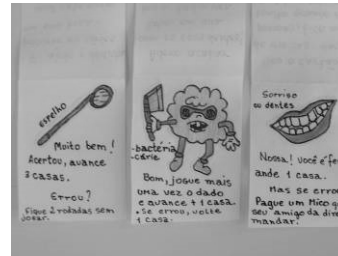 espelho
Muito bem!
Acertou, avance
3 casas.
Errou?
Fique 2 rodadas sem
jogar.
-bactéria
.cárie
Bom, jogue mais
uma vez o dado
e avance + 1 casa.
.Se errou, volte
1 casa.
Sorriso
ou dentes
Nossa! você é fe
ande 1 casa.
Mas se erro
Pague um Mico q
seu amigo da dire
mandar!